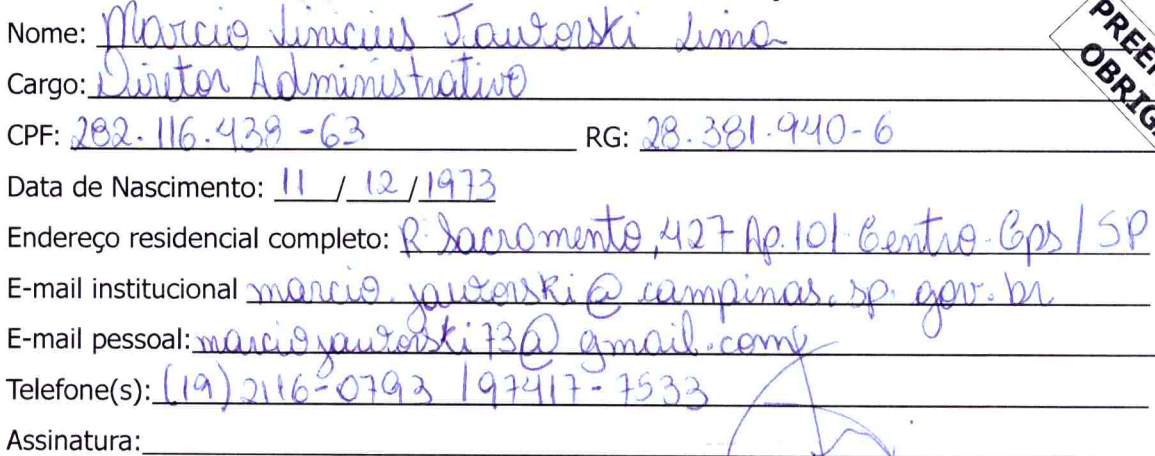 Nome: Marcio Vinicius Jaworski Lima
PREE
OBRIGA
Cargo: Diretor Administrativo
CPF: 282.116.438-63 RG: 28.381.940-6
Data de Nascimento: 11 / 12 / 1973
Endereço residencial completo: R. Sacramento, 427 Ap. 101 Centro. Cps / SP
E-mail institucional marcio.jaworski@campinas.sp.gov.br
E-mail pessoal: marciojaworski73@gmail.com
Telefone(s): (19) 2116-0793 / 97417-7533
Assinatura: